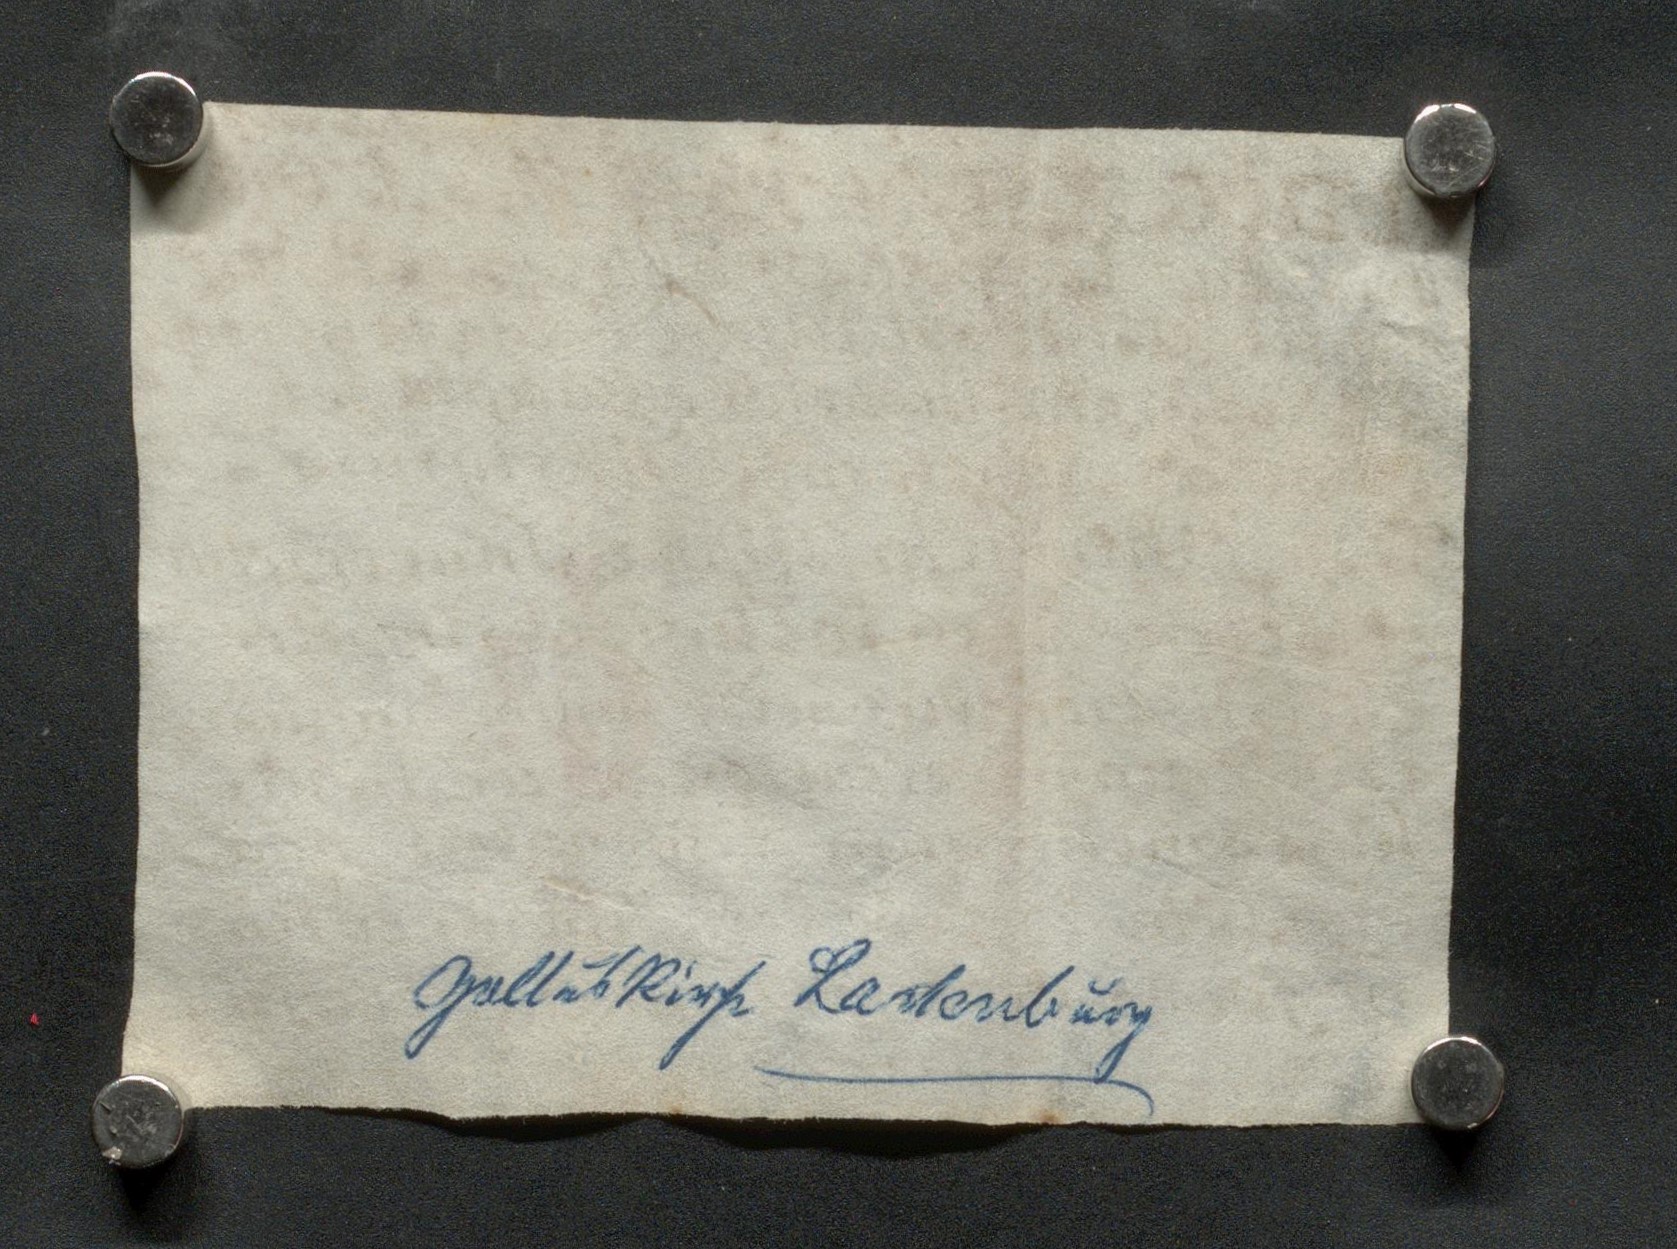 Galluskirche Ladenburg